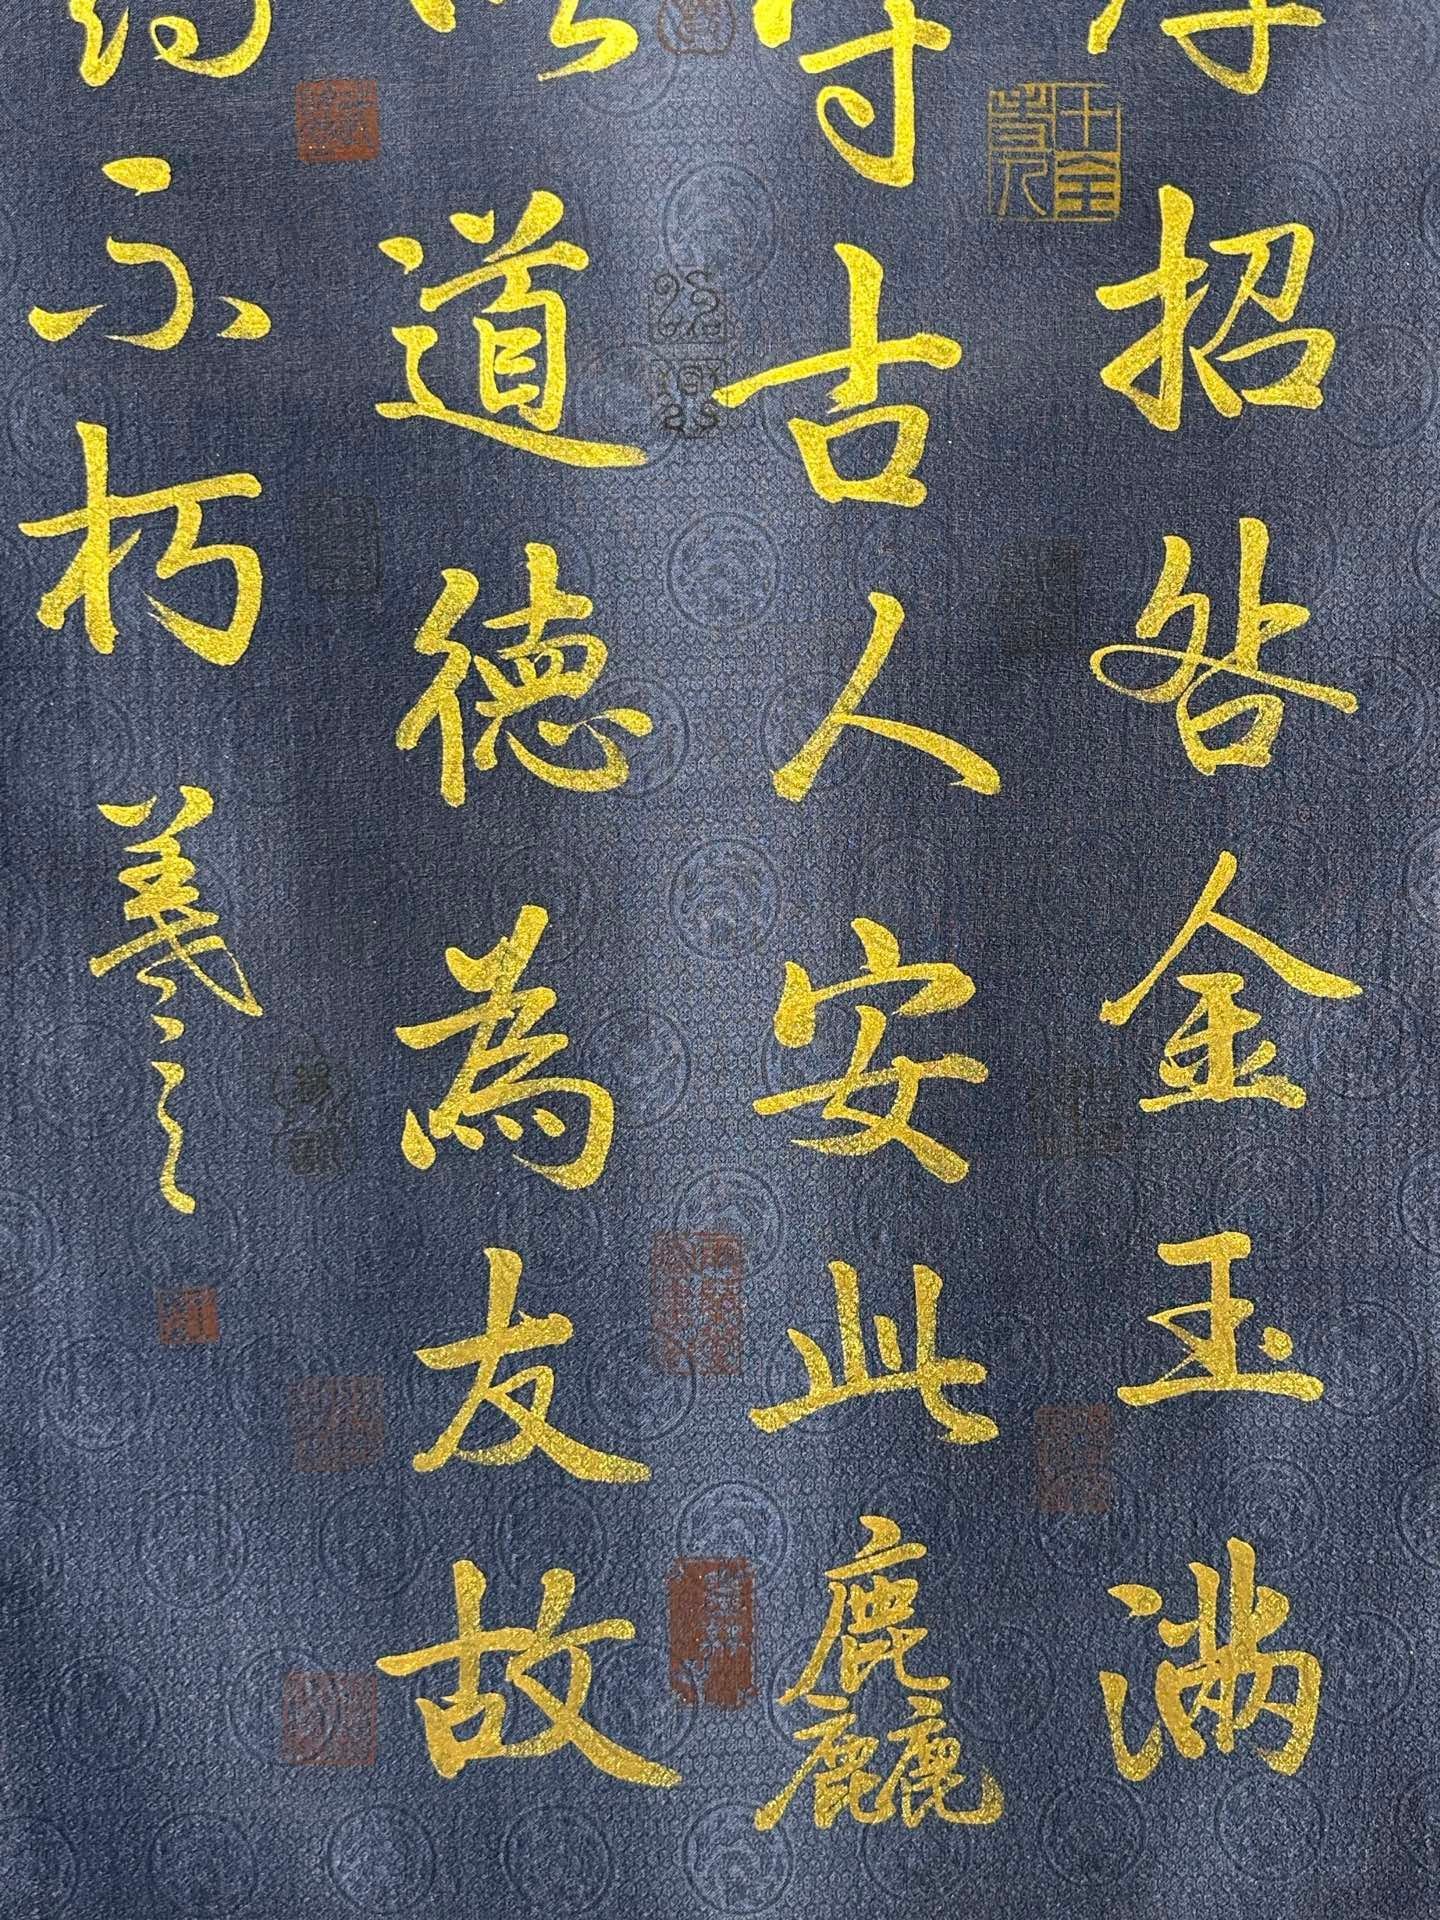 招咎金玉满
守古人安此麤
道德為友故
不朽羲之